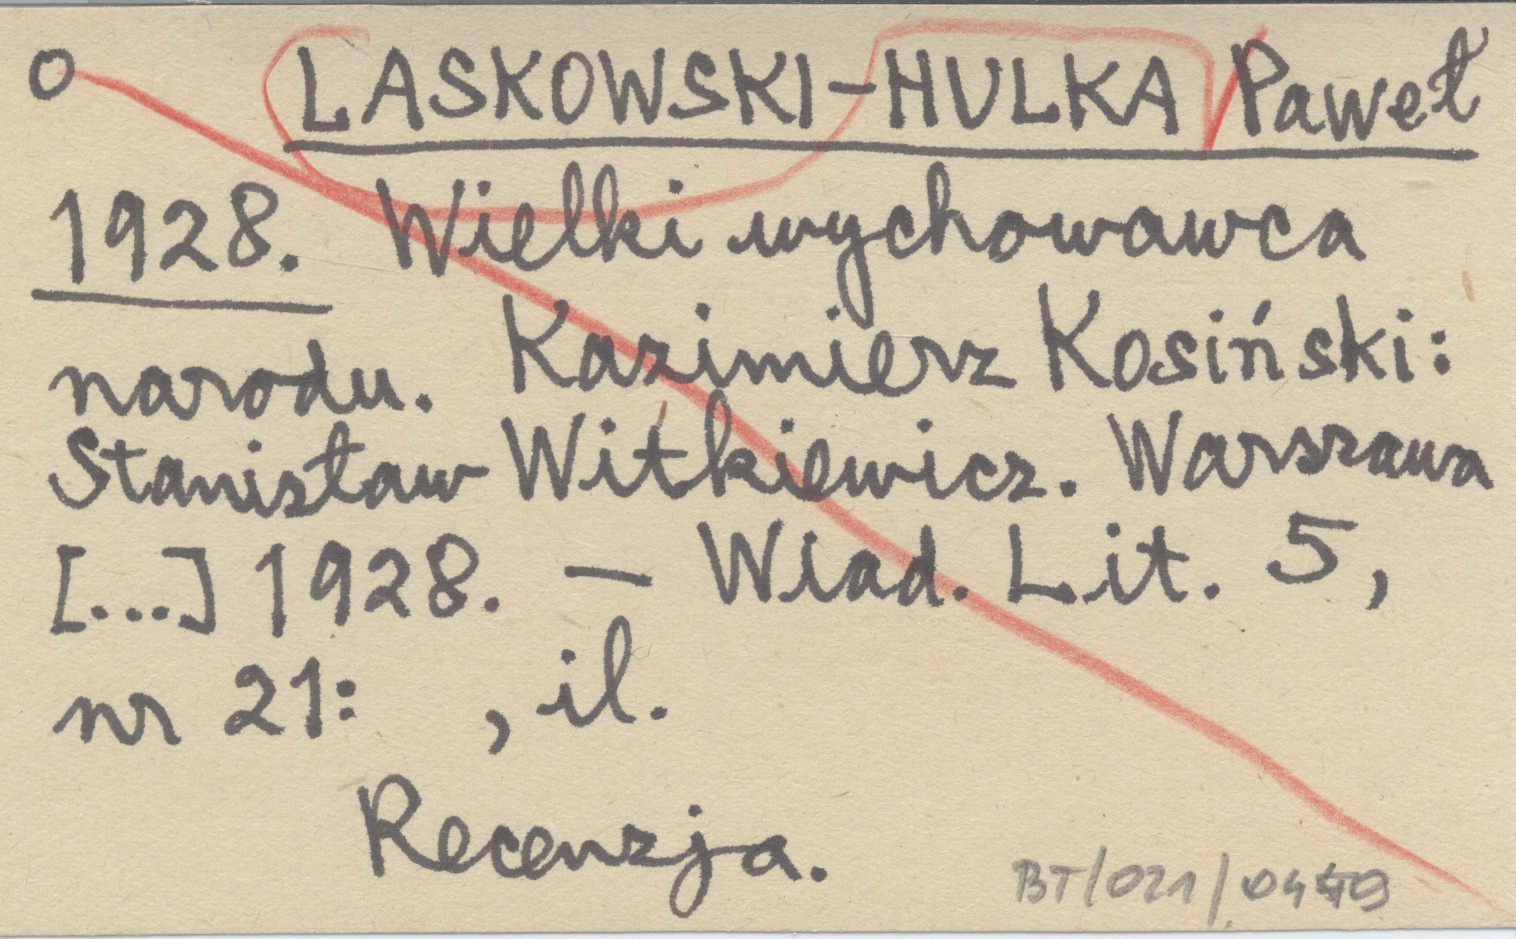 o LASKOWSKI-HULKA Paweł
1928. Wielki wychowawca
narodu. Kazimierz Kosiński:
Stanisław Witkiewicz. Warszawa
[...] 1928. – Wiad. Lit. 5,
nr 21: , il.
Recenzja.
BT/021/